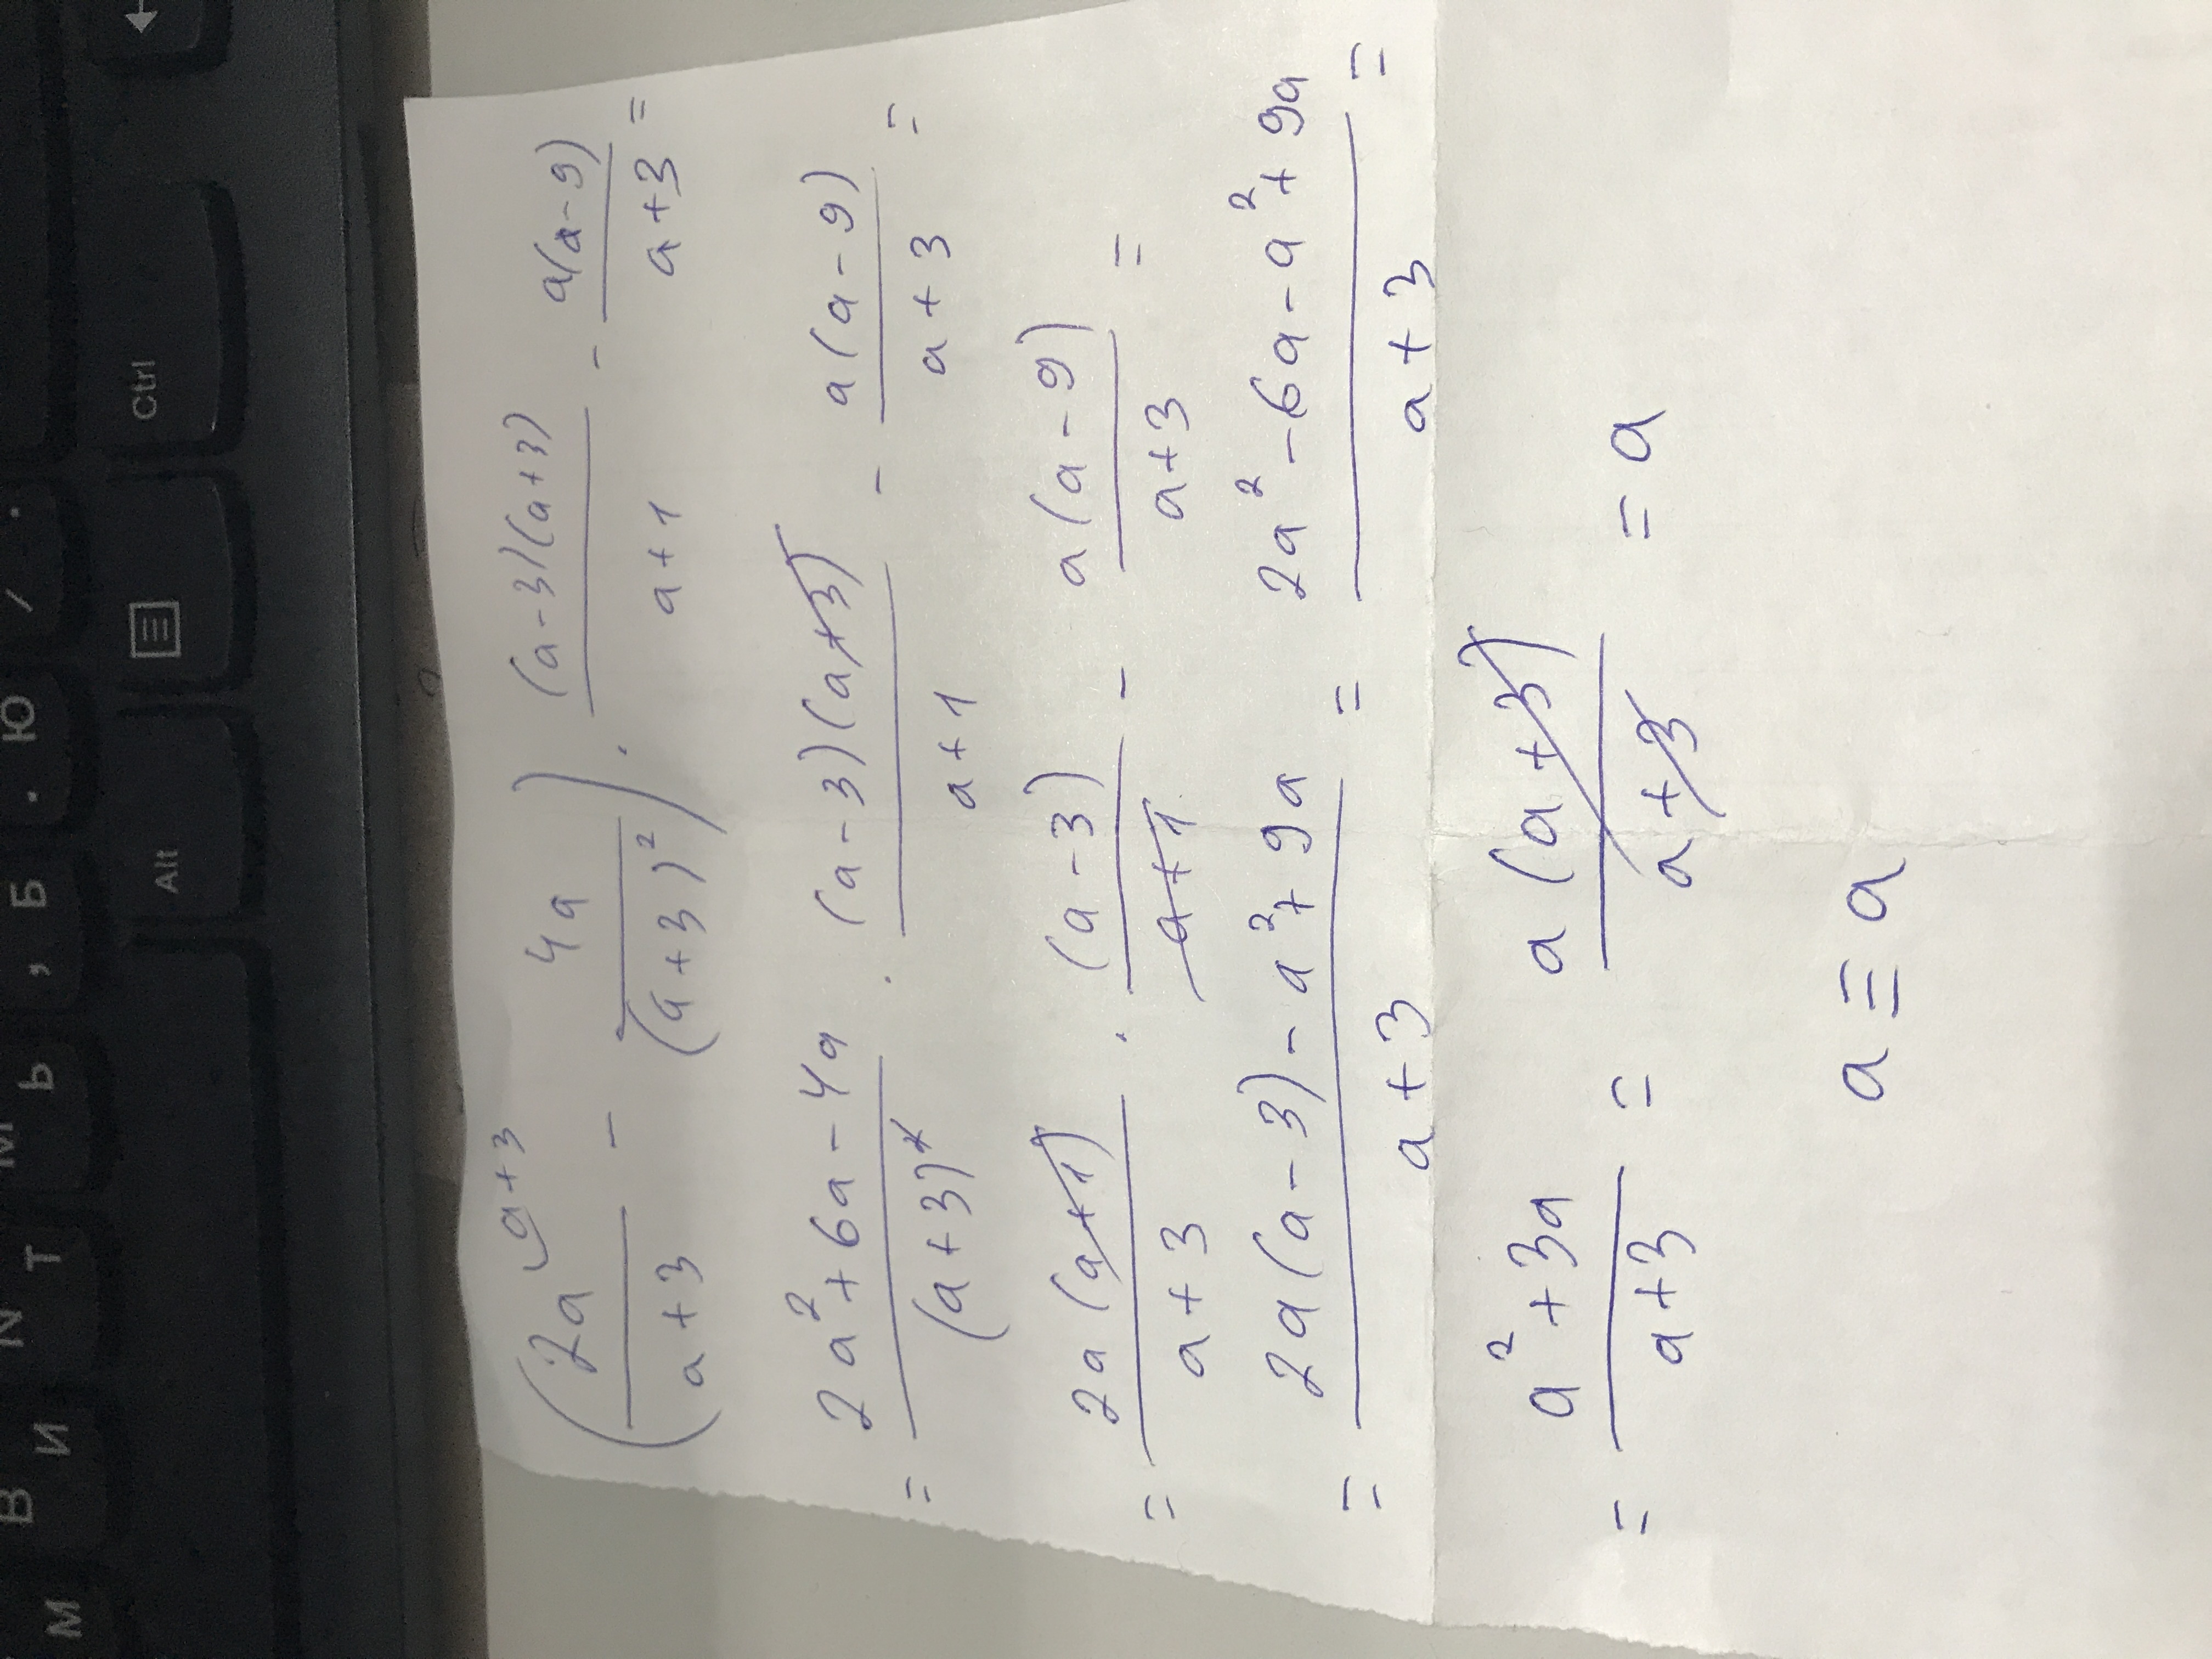 М В И N Т М Ь , Б . Ю / .
Alt Ctrl
(2a/(a+3) ⌣a+3 - 4a/(a+3)²) · (a-3)(a+3)/(a+1) - a(a-9)/(a+3) =
= (2a²+6a-4a)/(a+3)² · (a-3)(a+3)/(a+1) - a(a-9)/(a+3) =
= 2a(a+1)/(a+3) · (a-3)/(a+1) - a(a-9)/(a+3) =
= (2a(a-3)-a²+9a)/(a+3) = (2a²-6a-a²+9a)/(a+3) =
= (a²+3a)/(a+3) = a(a+3)/(a+3) = a
a≡a